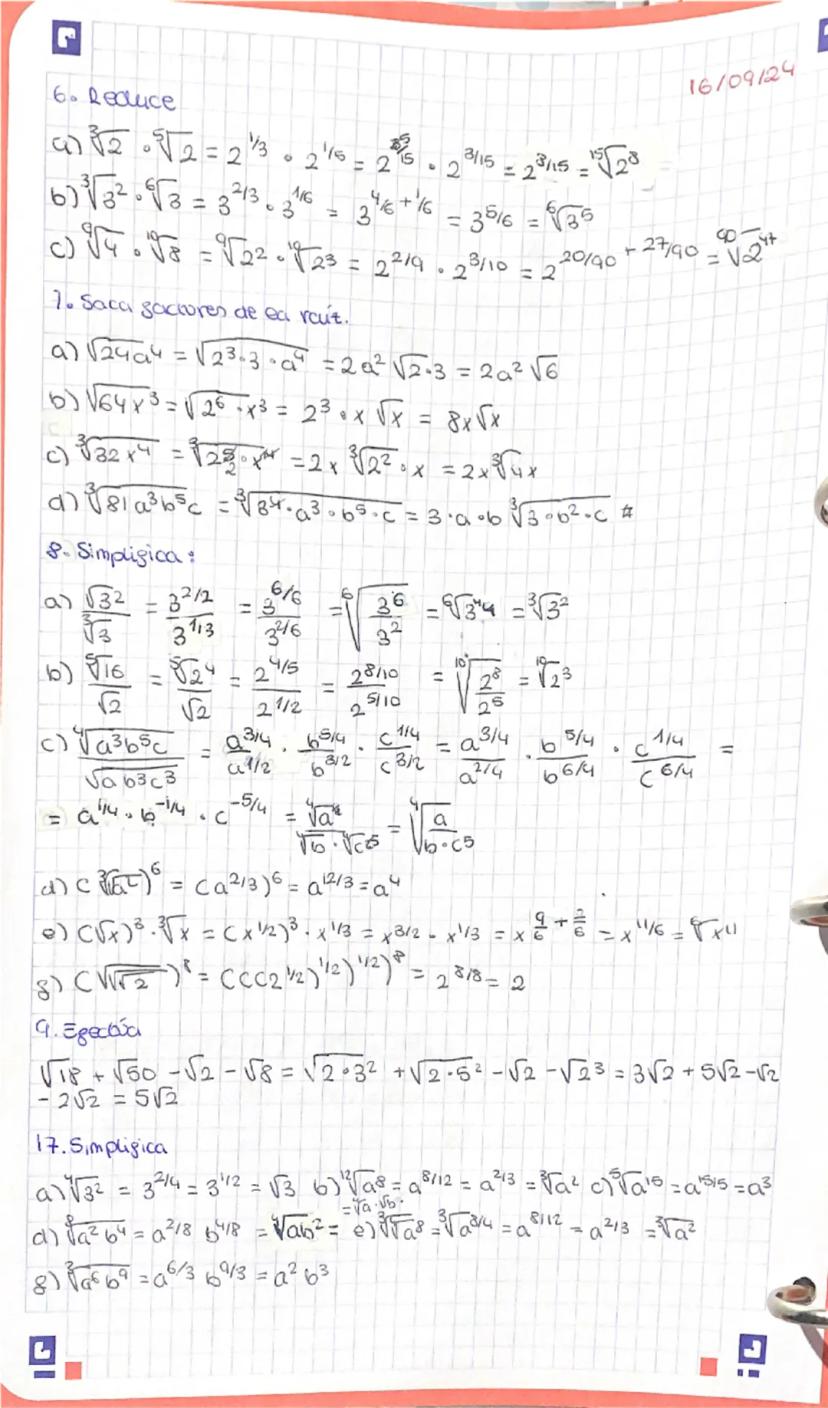 16/09/24
6. Reduce
a) ∛2 · ⁵√2 = 2^1/3 · 2^1/5 = 2^5/15 · 2^3/15 = 2^8/15 = ¹⁵√2⁸
b) ∛3² · ⁶√3 = 3^2/3 · 3^1/6 = 3^4/6+1/6 = 3^5/6 = ⁶√3⁵
c) ⁹√4 · ¹⁰√8 = ⁹√2² · ¹⁰√2³ = 2^2/9 · 2^3/10 = 2^20/90 + 27/90 = ⁹⁰√2⁴⁷
7. Saca factores de la raíz.
a) √24a⁴ = √2³·3·a⁴ = 2a² √2·3 = 2a² √6
b) √64x³ = √2⁶·x³ = 2³·x √x = 8x√x
c) ∛32x⁴ = ∛2⁵·x⁴ = 2x ∛2²·x = 2x∛4x
d) ∛81a³b⁵c = ∛3⁴·a³·b⁵·c = 3·a·b ∛3·b²·c #
8. Simplifica:
a) √3²/∛3 = 3^2/2/3^1/3 = 3^6/6/3^2/6 = ⁶√3⁶/3² = ⁶√3⁴ = ∛3²
b) ⁵√16/√2 = ⁵√2⁴/√2 = 2^4/5/2^1/2 = 2^8/10/2^5/10 = ¹⁰√2⁸/2⁵ = ¹⁰√2³
c) ⁴√a³b⁵c/√ab³c³ = a^3/4/a^1/2 · b^5/4/b^3/2 · c^1/4/c^3/2 = a^3/4/a^2/4 · b^5/4/b^6/4 · c^1/4/c^6/4 =
= a^1/4 · b^-1/4 · c^-5/4 = ⁴√a/⁴√b·⁴√c⁵ = ⁴√a/b·c⁵
d) (∛a²)⁶ = (a^2/3)⁶ = a^12/3 = a⁴
e) (√x)³ · ∛x = (x^1/2)³ · x^1/3 = x^3/2 · x^1/3 = x^9/6+2/6 = x^11/6 = ⁶√x¹¹
f) (√√√2)⁸ = (((2^1/2)^1/2)^1/2)⁸ = 2^8/8 = 2
9. Efectúa
√18 + √50 - √2 - √8 = √2·3² + √2·5² - √2 - √2³ = 3√2 + 5√2 - √2
- 2√2 = 5√2
17. Simplifica
a) ⁴√3² = 3^2/4 = 3^1/2 = √3 b) ¹²√a⁸ = a^8/12 = a^2/3 = ∛a² c) ⁵√a¹⁵ = a^15/5 = a³
= ⁴√a · √b ·
d) ⁸√a²b⁴ = a^2/8 b^4/8 = ⁴√ab² = e) ∛⁴√a⁸ = ∛a^8/4 = a^8/12 = a^2/3 = ∛a²
f) ∛a⁶b⁹ = a^6/3 b^9/3 = a² b³